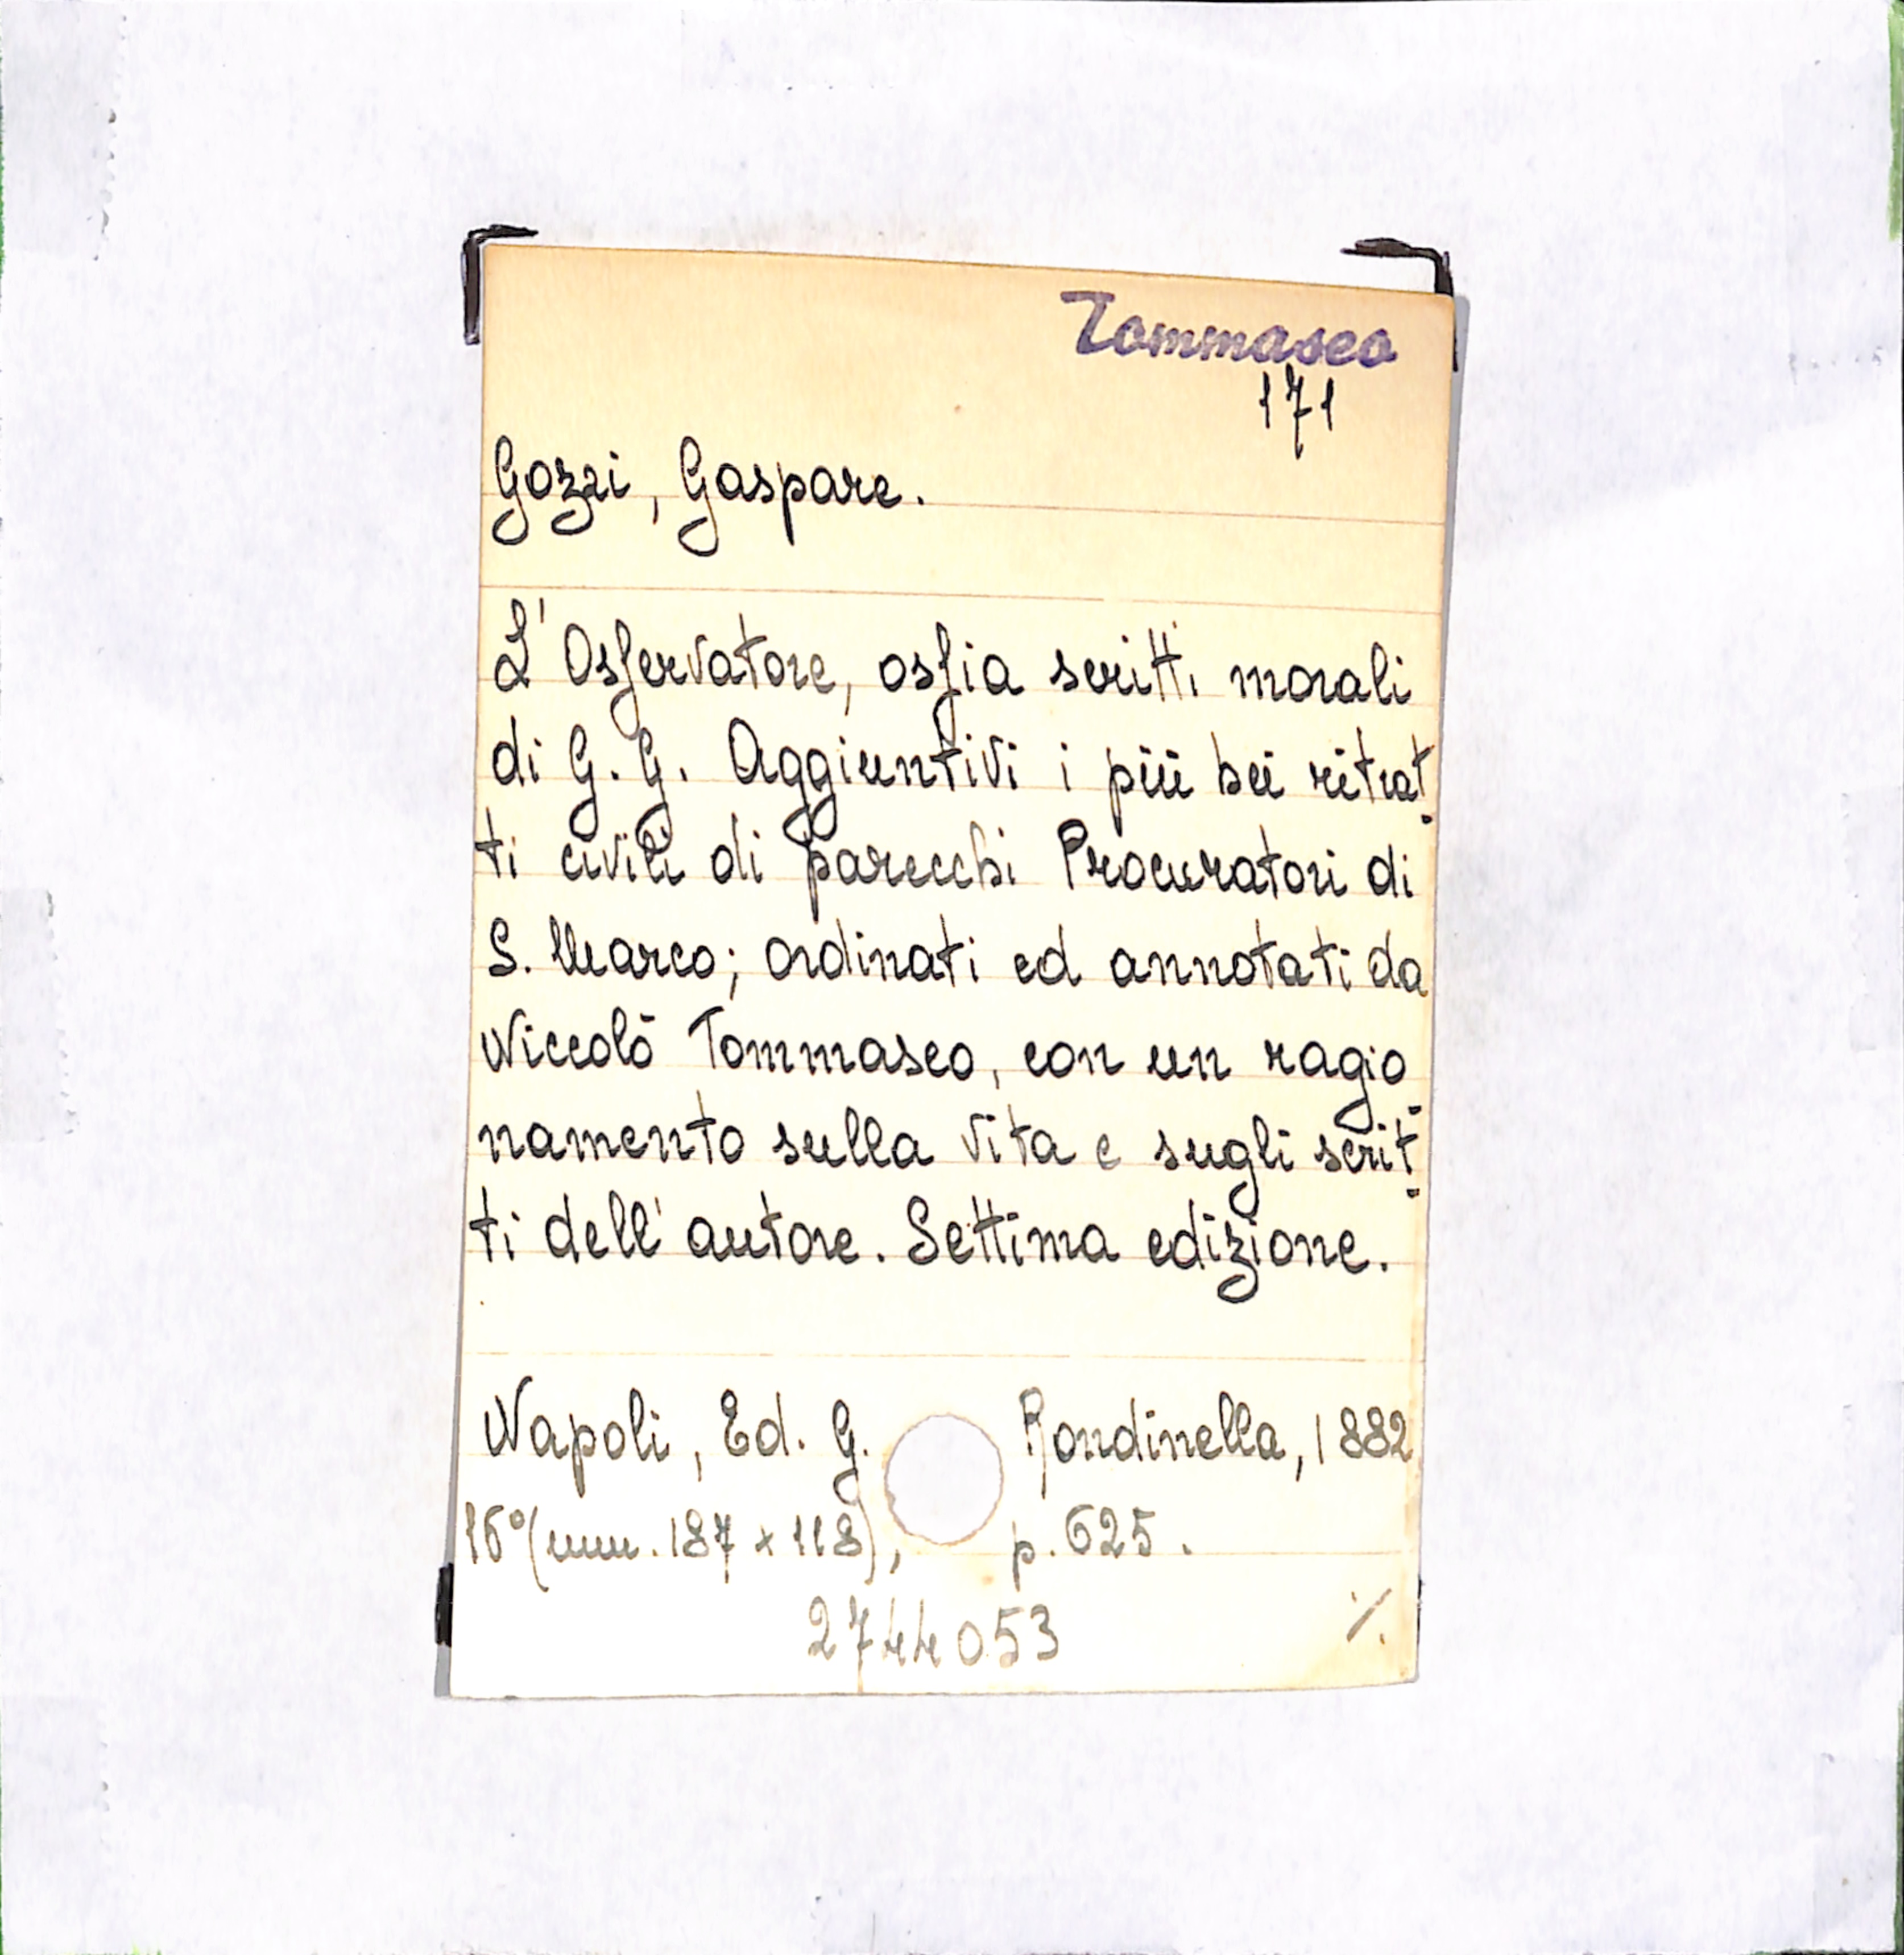 Tommaseo
171
Gozzi, Gaspare.
L'Osservatore, ossia scritti morali
di G. G. Aggiuntivi i più bei ritrat-
ti civili di parecchi Procuratori di
S. Marco; ordinati ed annotati da
Niccolò Tommaseo, con un ragio-
namento sulla vita e sugli scrit-
ti dell'autore. Settima edizione.
Napoli, Ed. G. Rondinella, 1882
16° (mm. 187 x 118), p. 625.
2744053
./.